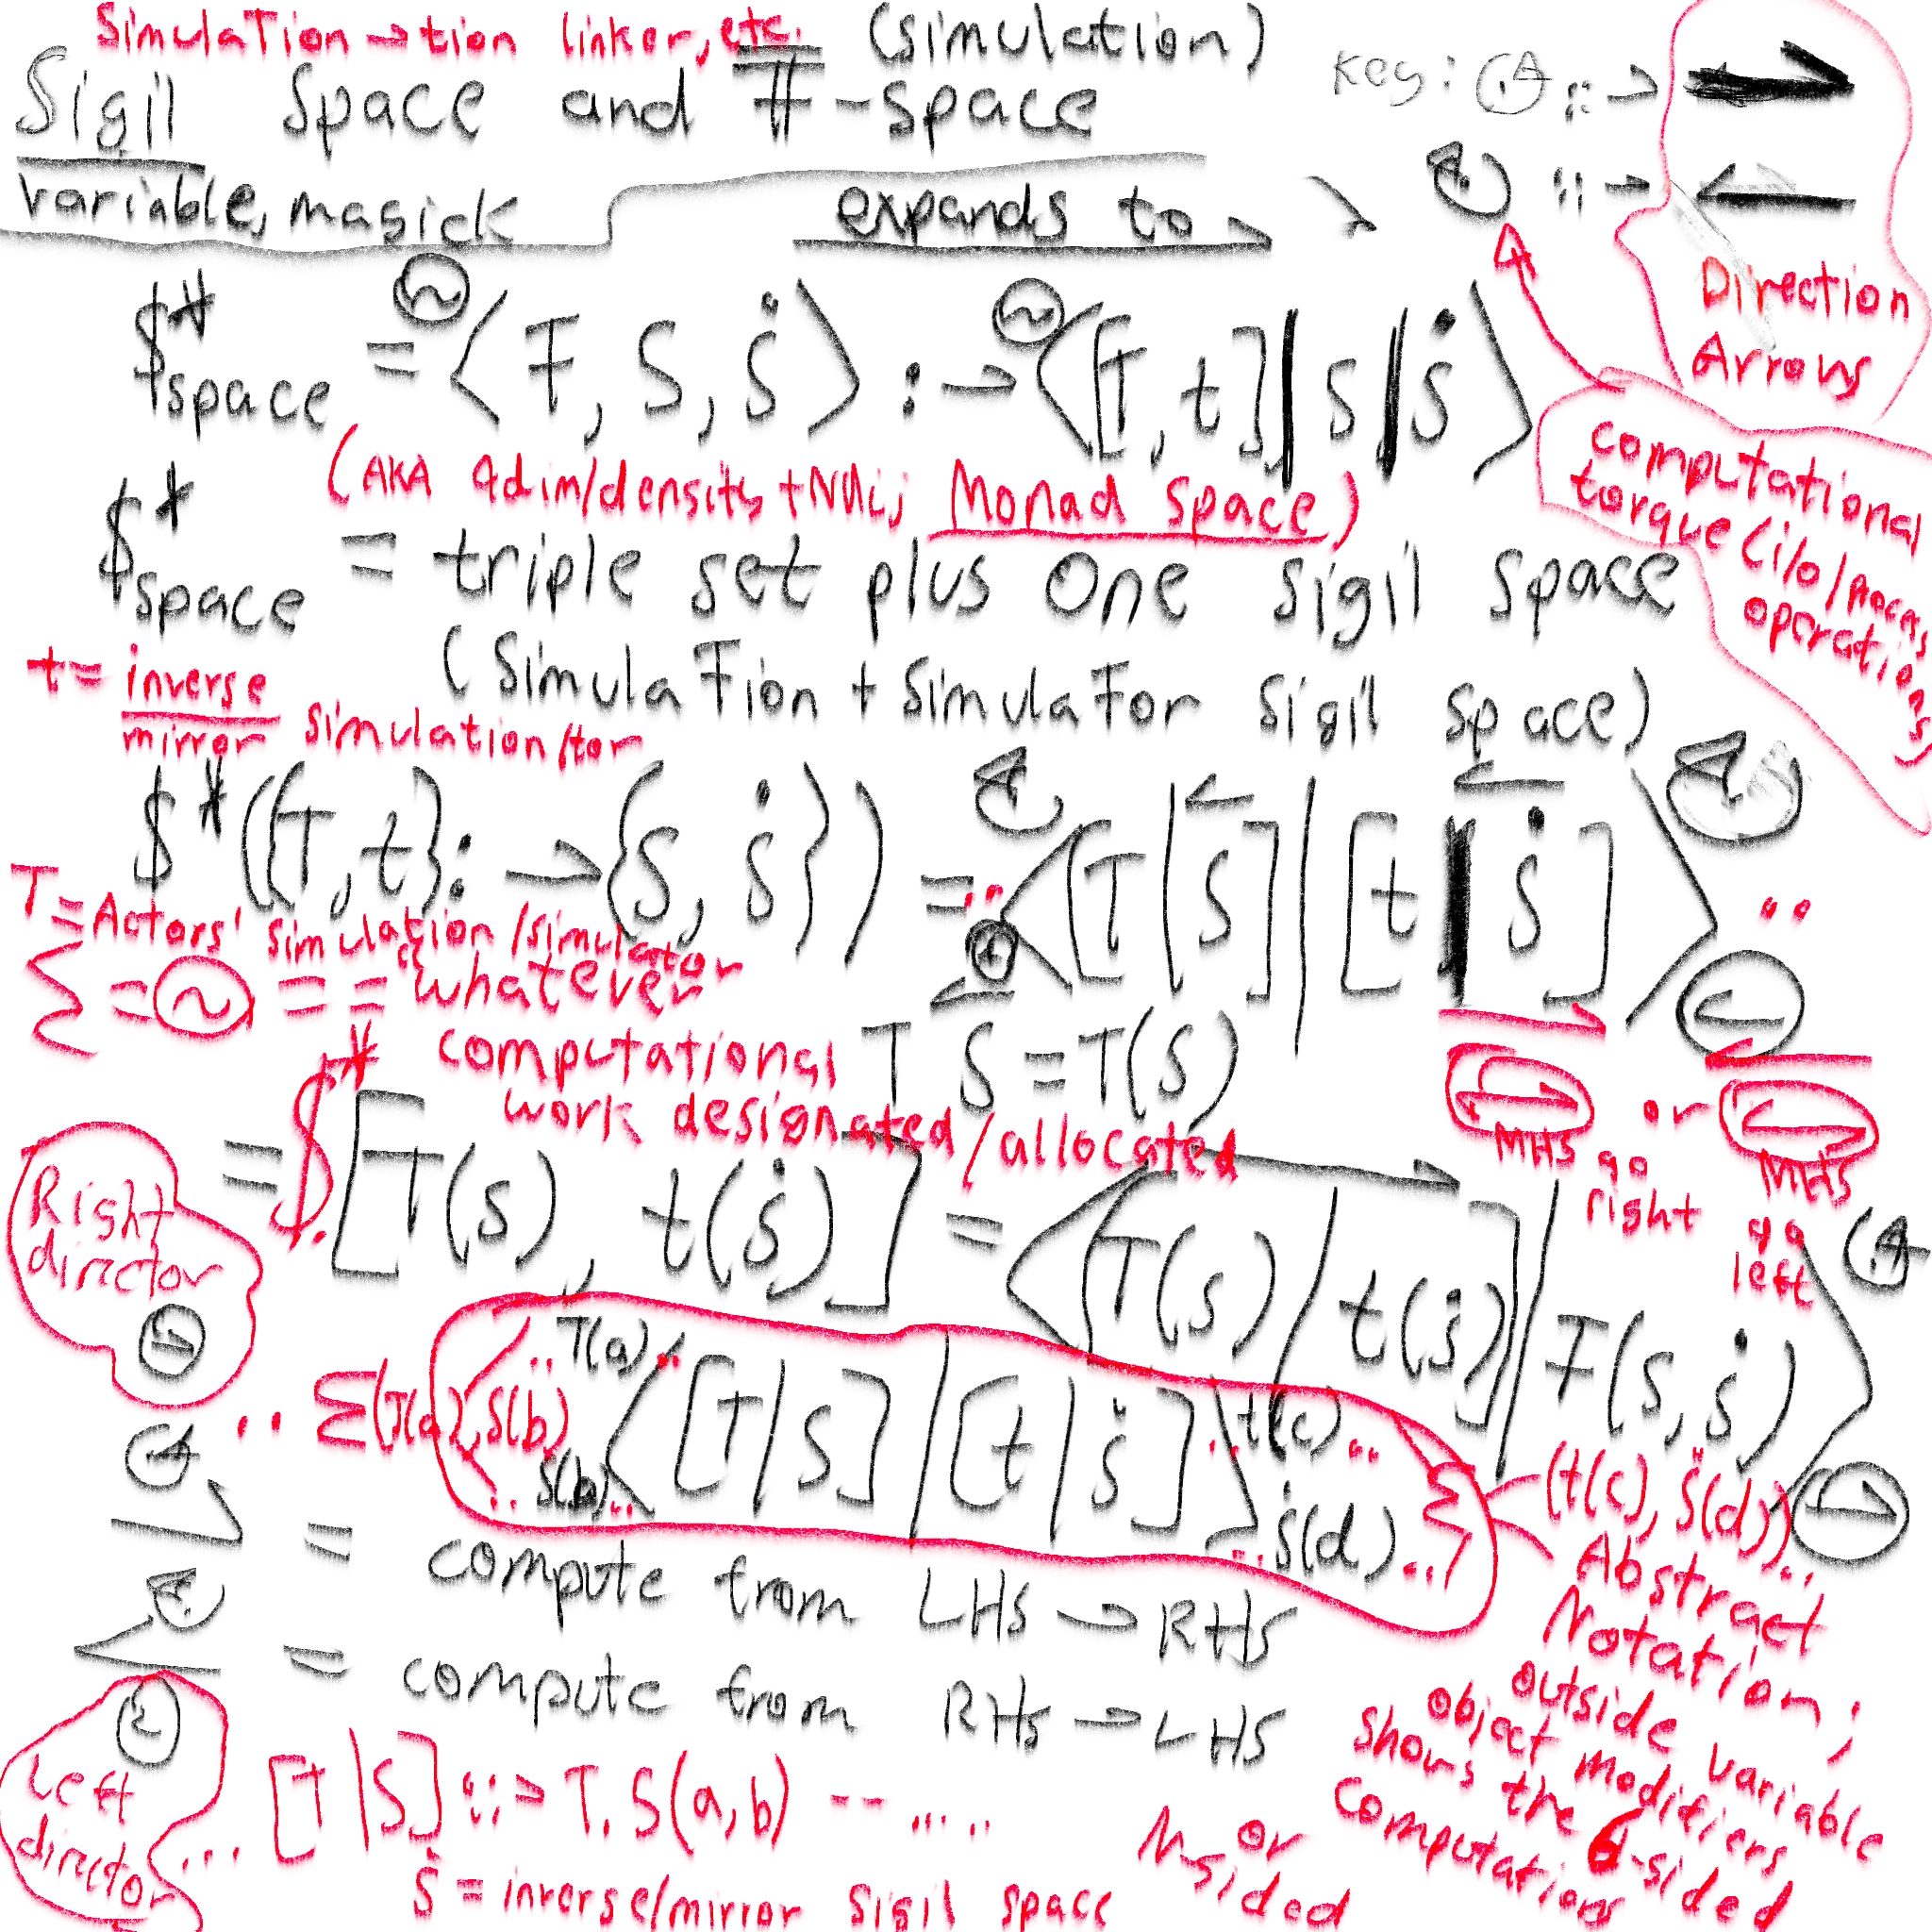 SimulaTion → tion linker, etc. (simulation)
Sigil Space and T-space
Key: A ::→
variable, magick expands to →
::→
Direction
Arrows
$*space = ~ ⟨T, S, ṡ⟩ :→ ~ ⟨[T, t] | S | ṡ⟩
(AKA 4dim/density + NULL; Monad Space)
computational
torque (i/o/process
operations)
$*space = triple set plus one sigil space
(SimulaTion + SimulaTor Sigil Space)
t = inverse
mirror simulation/tor
$*({T, t} :→ {S, ṡ}) = ..⟨[T | S] | [t | ṡ]⟩..
T = Actors' simulation/simulator
Σ = ~ == "whatever
computational
work designated/allocated
T S = T(S)
MHS go right or MHS go left
Right
director
= $*[T(s), t(ṡ)] = ⟨[T(s) | t(ṡ)] | T(s, ṡ)⟩
..T(a)..
.. Σ(T(a), S(b) ..S(b).. ⟨[T | S] | [t | ṡ]⟩ ..t(c).. ..ṡ(d).. Σ (t(c), ṡ(d))..
= compute from LHS → RHS
= compute from RHS → LHS
Abstract
Notation;
outside variable
object modifiers
shows the 6-sided
computations
or
N-sided
Left
director
... [T | S] ::→ T.S(a,b) -- .....
ṡ = inverse/mirror sigil space